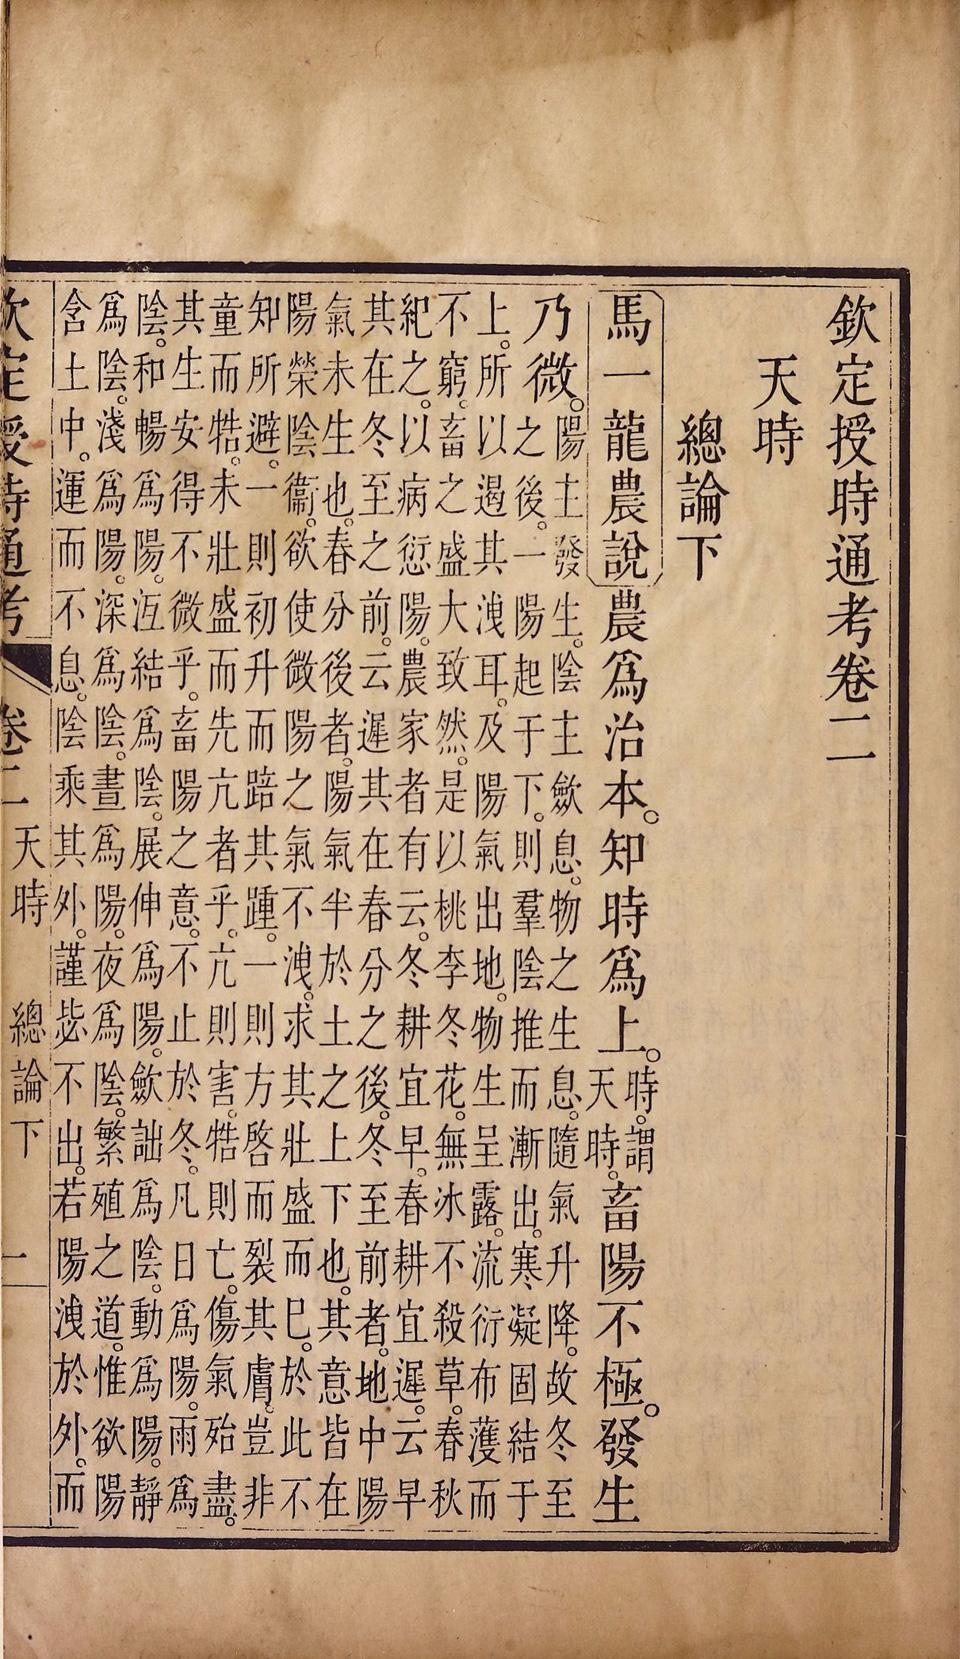 欽定授時通考卷二
天時
總論下
馬一龍農說農爲治本。知時爲上。時。謂天時。畜陽不極。發生
乃微。陽主發生。陰主歛息。物之生息。隨氣升降。故冬至
之後。一陽起于下。則羣陰推而漸出。寒凝固結于
上。所以遏其洩耳。及陽氣出地。物生呈露。流衍布濩而
不窮。畜之盛大致然。是以桃李冬花。無冰不殺草。春秋
紀之。以病愆陽。農家者有云。冬耕宜早。春耕宜遲。云早
其在冬至之前。云遲其在春分之後。冬至前者。地中陽
氣未生也。春分後者。陽氣半於土之上下也。其意皆在
陽榮陰衞。欲使微陽之氣不洩。求其壯盛而已。於此不
知所避。一則初升而踣其踵。一則方啓而裂其膚。豈非
童而牿。未壯盛而先亢者乎。亢則害。牿則亡。傷氣殆盡。
其生安得不微乎。畜陽之意。不止於冬。凡日爲陽。雨爲
陰。和暢爲陽。沍結爲陰。展伸爲陽。歛詘爲陰。動爲陽。靜
爲陰。淺爲陽。深爲陰。晝爲陽。夜爲陰。繁殖之道。惟欲陽
含土中。運而不息。陰乘其外。謹毖不出。若陽洩於外。而
欽定授時通考 卷二 天時 總論下 一